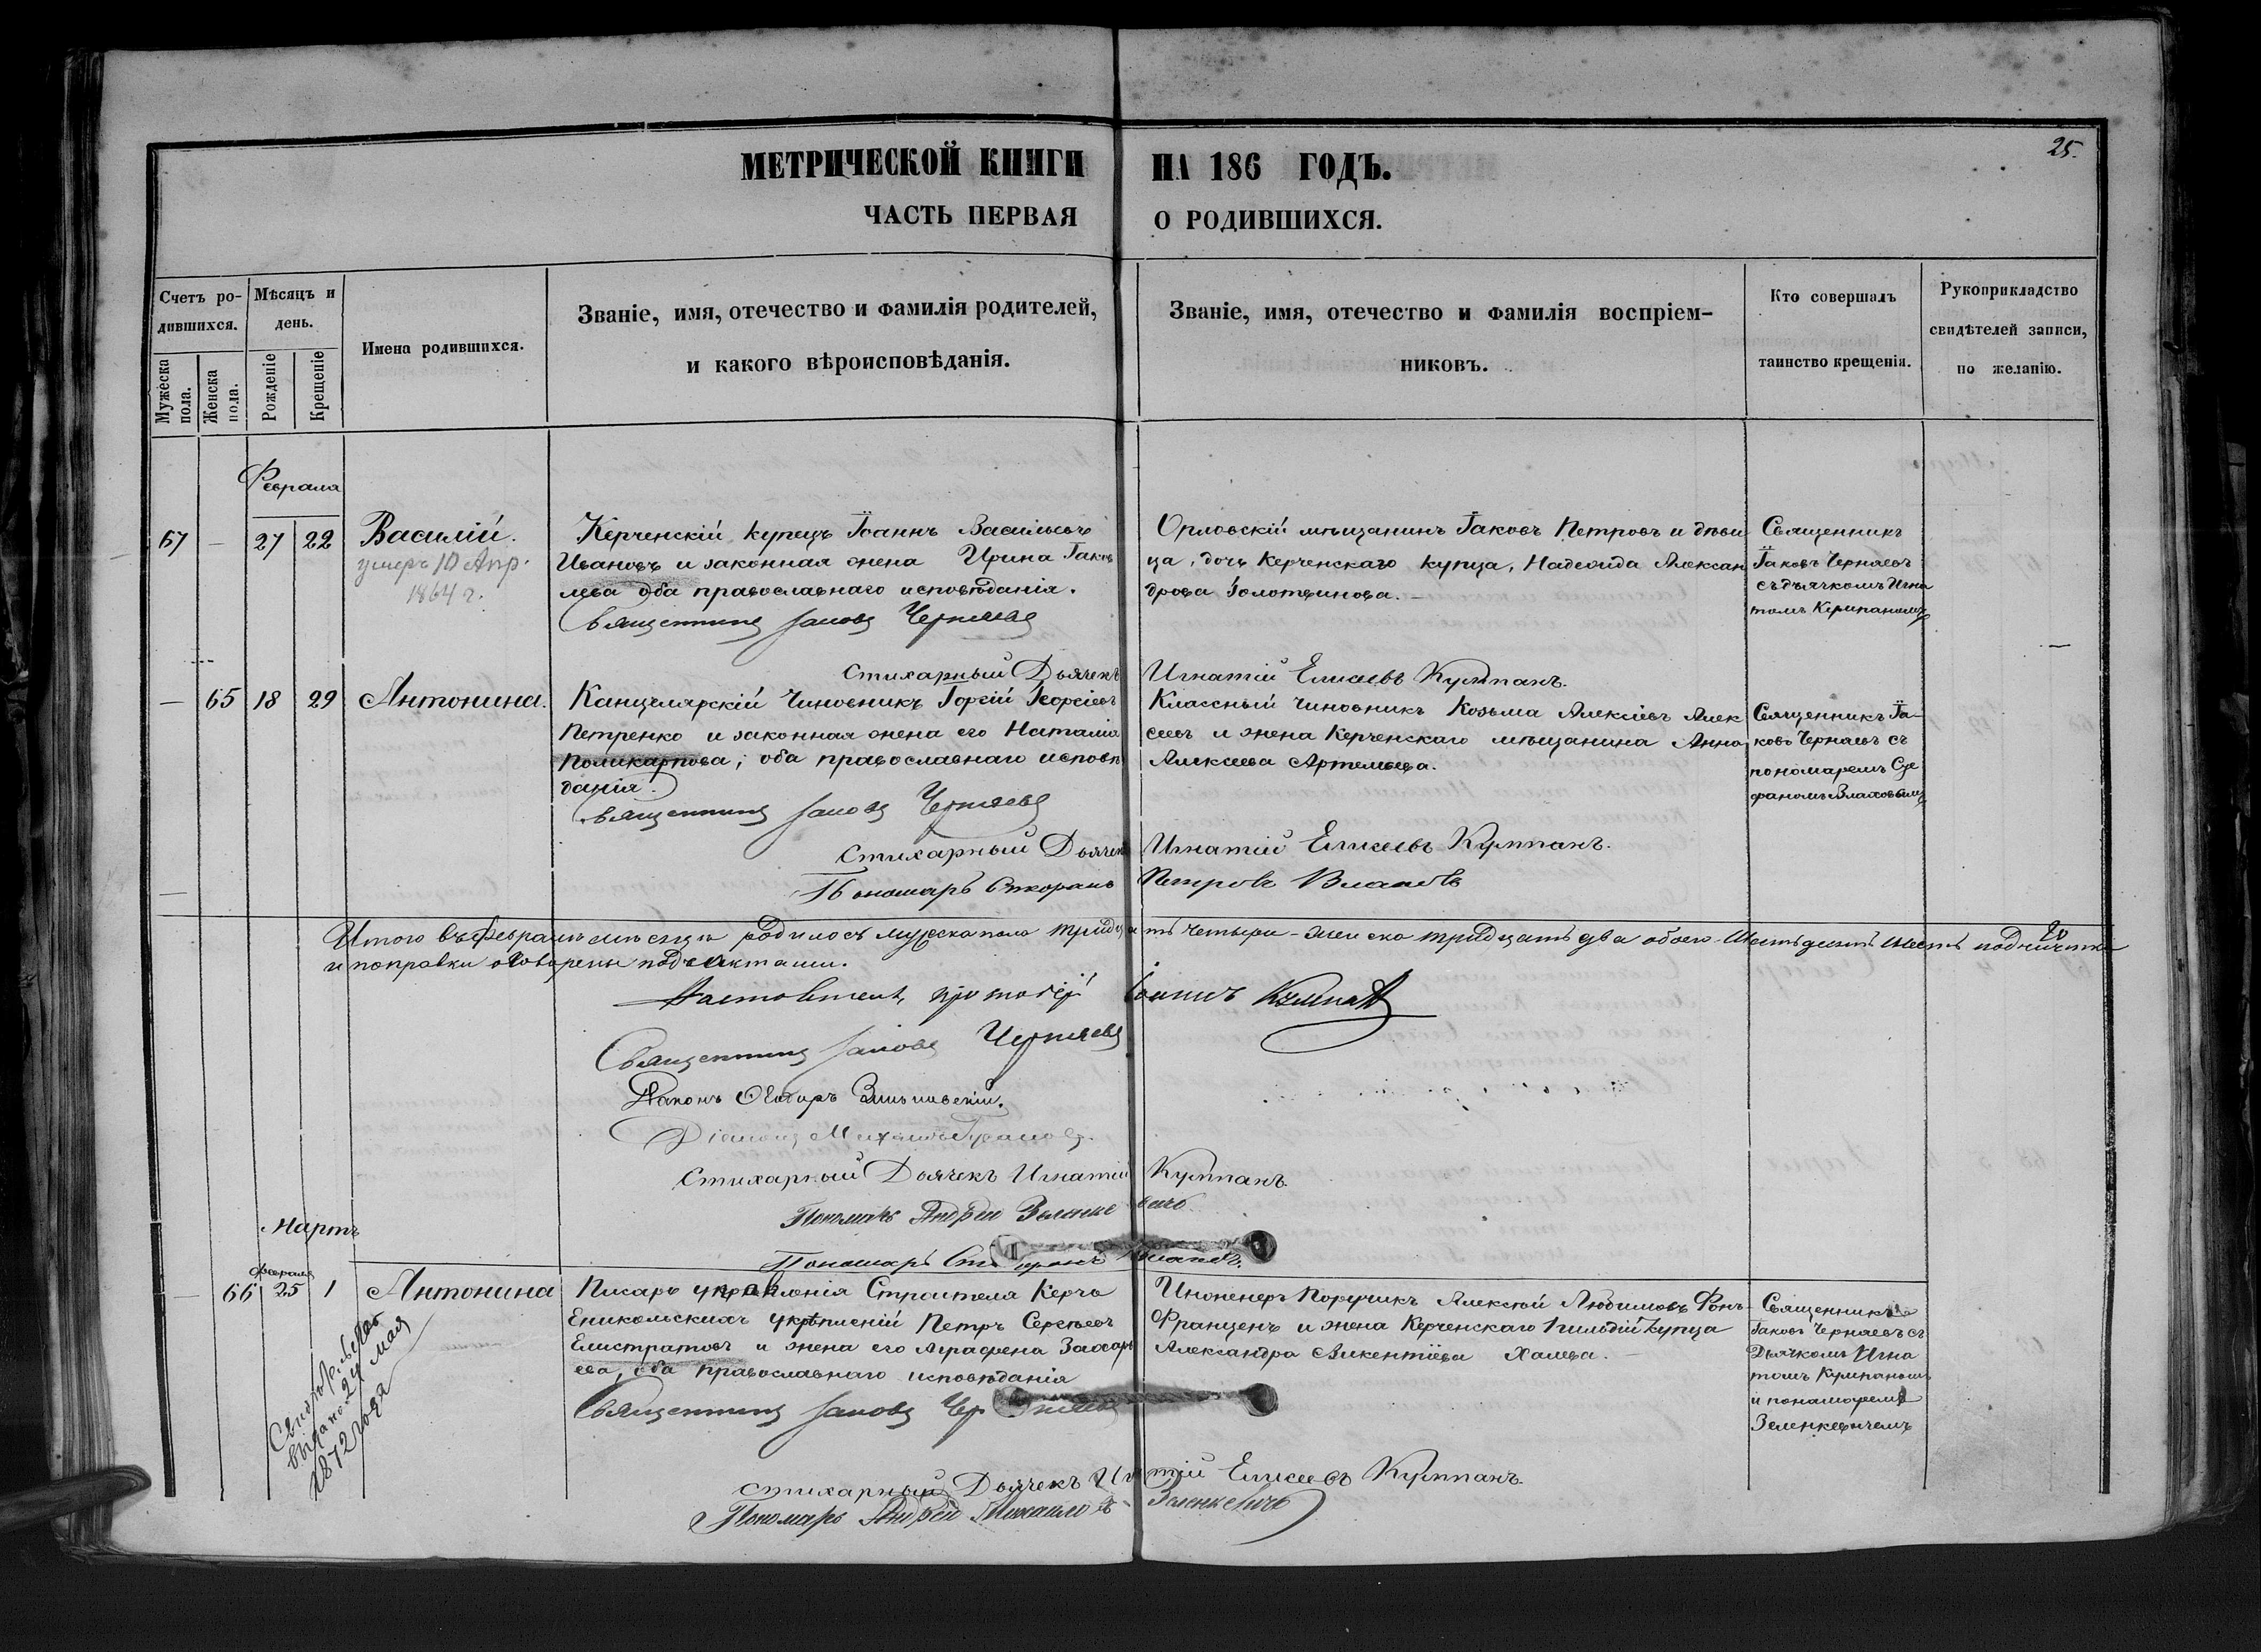 25.
МЕТРИЧЕСКОЙ КНИГИ НА 186 ГОДЪ.
ЧАСТЬ ПЕРВАЯ О РОДИВШИХСЯ.
Счетъ ро-
дившихся.
Мужеска
пола.
Женска
пола.
Мѣсяцъ и
день.
Рожденіе
Крещеніе
Имена родившихся.
Званіе, имя, отечество и фамилія родителей,
и какого вѣроисповѣданія.
Званіе, имя, отечество и фамилія воспріем-
никовъ.
Кто совершалъ
таинство крещенія.
Рукоприкладство
свидѣтелей записи,
по желанію.
Февраля
67 – 27 22
Василій.
умеръ 10 Апр.
1864 г.
Керченскій купецъ Іоаннъ Васильевъ
Ивановъ и законная жена Ирина Іаков
лева оба православнаго исповѣданія.
Орловскій мѣщанинъ Іаковъ Петровъ и дѣви
ца, дочь Керченскаго купца, Надежда Алексан
дрова Голотвинова. –
Священникъ
Іаковъ Черняевъ
съ дьячкомъ Игна
тіемъ
Священникъ Іаковъ Черняевъ
Стихарный Дьячекъ Игнатій Елисеевъ
– 65 18 29
Антонина.
Канцелярскій Чиновникъ Георгіевъ
Петренко и законная жена его Наталія
Поликарпова; оба православнаго исповѣ
данія.
Классный Чиновникъ Козьма Алексіевъ Алек
сеевъ и жена Керченскаго мѣщанина Анна
Алексеева Артемьева.
Священникъ Іа-
ковъ Черняевъ съ
пономаремъ Сте
фаномъ Влаховымъ
Священникъ Іаковъ Черняевъ
Стихарный Дьячекъ Игнатій Елисеевъ
Пономарь Петровъ
Итого въ Февралѣ мѣсяцѣ родилось мужеска пола тридцать четыре – женска тридцать два обоего – шестьдесятъ шесть подчистки
и поправки оговорены подъ актами.
Настоятель, протоіерей Іоаннъ
Священникъ Іаковъ Черняевъ
Діаконъ
Діаконъ
Стихарный Дьячекъ Игнатій
Пономарь Андрей Зеленкевичъ
Пономарь
Мартъ
Февраля
– 66 25 1
Антонина
Свидѣт.
выдано 24 мая
1872 года
Писарь управленія Строителя Керчь
Еникольскихъ укрѣпленій Петръ Сергѣевъ
Елистратовъ и жена его Аграфена Захарь
ева, оба православнаго исповѣданія
Инженеръ Поручикъ Алексѣй Любимовъ Фонъ-
Франценъ и жена Керченскаго 1 гильдіи купца
Александра Викентіева Халева. –
Священникъ
Іаковъ Черняевъ съ
Дьячкомъ Игна
тіемъ
и пономаремъ
Зеленкевичемъ
Священникъ Іаковъ Черняевъ
Стихарный Дьячекъ Игнатій Елисеевъ
Пономарь Андрей Михайловъ Зеленкевичъ